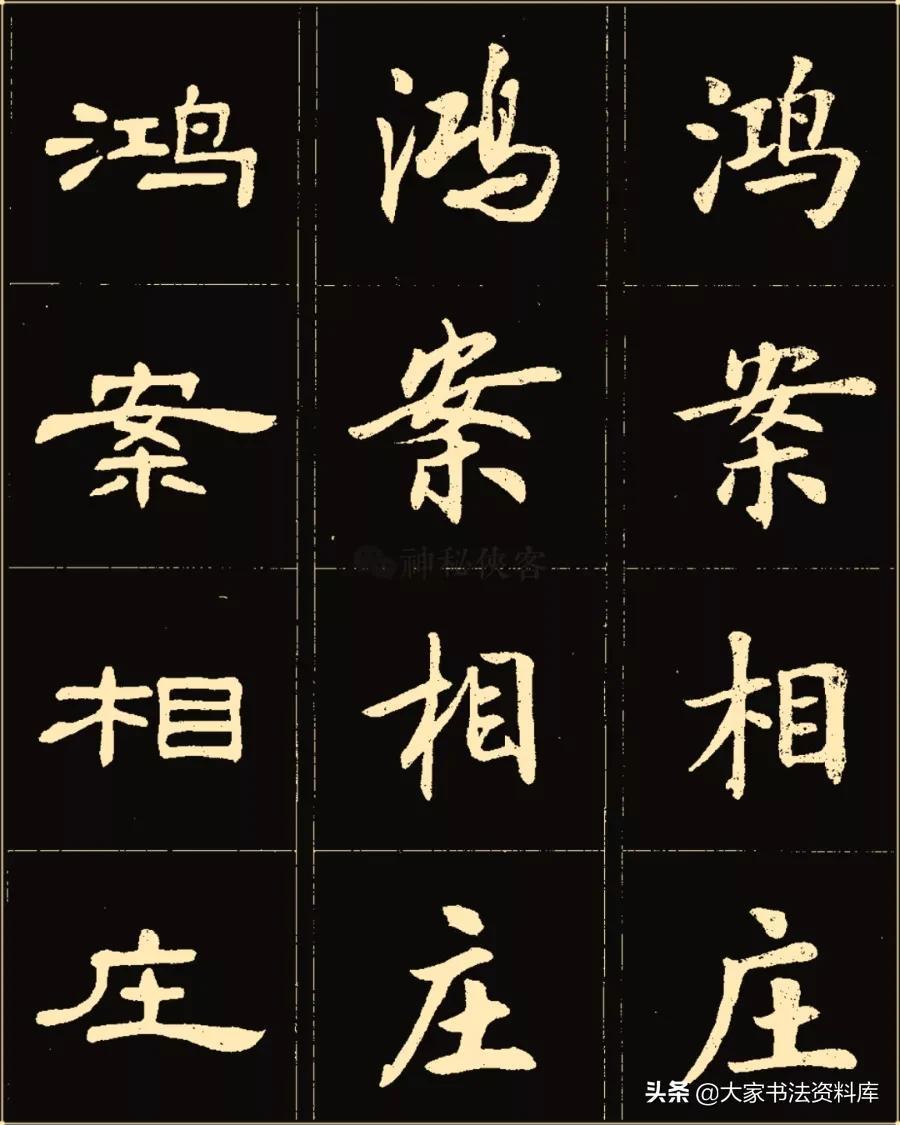 鸿 鸿 鸿
案 案 案
神秘侠客
相 相 相
庄 庄 庄
头条 @大家书法资料库